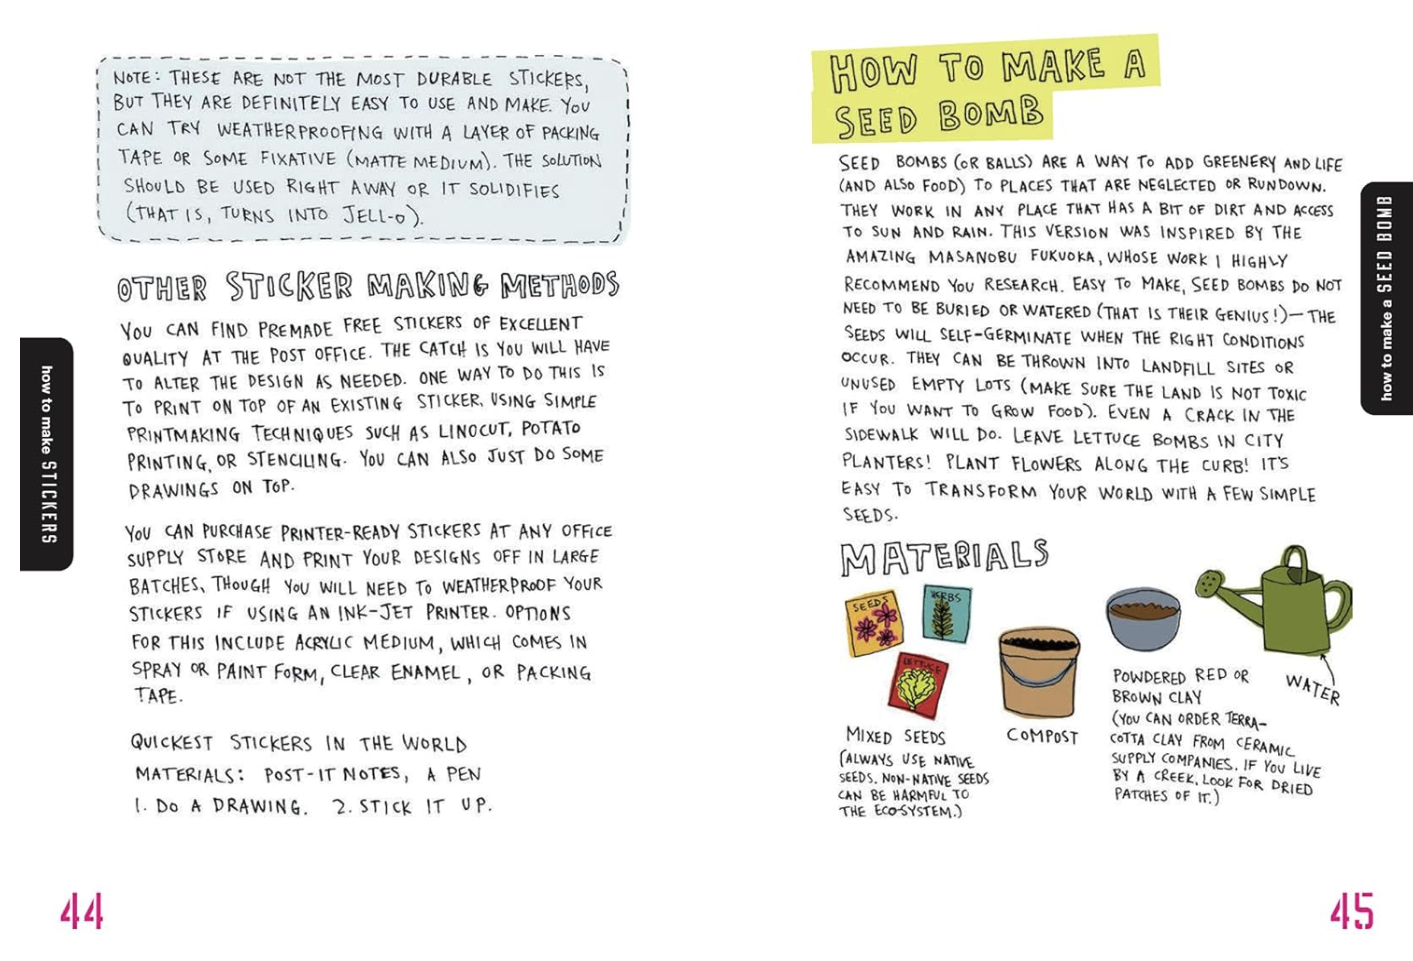 NOTE: THESE ARE NOT THE MOST DURABLE STICKERS,
BUT THEY ARE DEFINITELY EASY TO USE AND MAKE. YOU
CAN TRY WEATHERPROOFING WITH A LAYER OF PACKING
TAPE OR SOME FIXATIVE (MATTE MEDIUM). THE SOLUTION
SHOULD BE USED RIGHT AWAY OR IT SOLIDIFIES
(THAT IS, TURNS INTO JELL-O).
OTHER STICKER MAKING METHODS
YOU CAN FIND PREMADE FREE STICKERS OF EXCELLENT
QUALITY AT THE POST OFFICE. THE CATCH IS YOU WILL HAVE
TO ALTER THE DESIGN AS NEEDED. ONE WAY TO DO THIS IS
TO PRINT ON TOP OF AN EXISTING STICKER, USING SIMPLE
PRINTMAKING TECHNIQUES SUCH AS LINOCUT, POTATO
PRINTING, OR STENCILING. YOU CAN ALSO JUST DO SOME
DRAWINGS ON TOP.
YOU CAN PURCHASE PRINTER-READY STICKERS AT ANY OFFICE
SUPPLY STORE AND PRINT YOUR DESIGNS OFF IN LARGE
BATCHES, THOUGH YOU WILL NEED TO WEATHERPROOF YOUR
STICKERS IF USING AN INK-JET PRINTER. OPTIONS
FOR THIS INCLUDE ACRYLIC MEDIUM, WHICH COMES IN
SPRAY OR PAINT FORM, CLEAR ENAMEL, OR PACKING
TAPE.
QUICKEST STICKERS IN THE WORLD
MATERIALS: POST-IT NOTES, A PEN
1. DO A DRAWING. 2. STICK IT UP.
how to make STICKERS
44
HOW TO MAKE A
SEED BOMB
SEED BOMBS (OR BALLS) ARE A WAY TO ADD GREENERY AND LIFE
(AND ALSO FOOD) TO PLACES THAT ARE NEGLECTED OR RUNDOWN.
THEY WORK IN ANY PLACE THAT HAS A BIT OF DIRT AND ACCESS
TO SUN AND RAIN. THIS VERSION WAS INSPIRED BY THE
AMAZING MASANOBU FUKUOKA, WHOSE WORK I HIGHLY
RECOMMEND YOU RESEARCH. EASY TO MAKE, SEED BOMBS DO NOT
NEED TO BE BURIED OR WATERED (THAT IS THEIR GENIUS!)—THE
SEEDS WILL SELF-GERMINATE WHEN THE RIGHT CONDITIONS
OCCUR. THEY CAN BE THROWN INTO LANDFILL SITES OR
UNUSED EMPTY LOTS (MAKE SURE THE LAND IS NOT TOXIC
IF YOU WANT TO GROW FOOD). EVEN A CRACK IN THE
SIDEWALK WILL DO. LEAVE LETTUCE BOMBS IN CITY
PLANTERS! PLANT FLOWERS ALONG THE CURB! IT'S
EASY TO TRANSFORM YOUR WORLD WITH A FEW SIMPLE
SEEDS.
MATERIALS
SEEDS
HERBS
LETTUCE
MIXED SEEDS
(ALWAYS USE NATIVE
SEEDS. NON-NATIVE SEEDS
CAN BE HARMFUL TO
THE ECO-SYSTEM.)
COMPOST
POWDERED RED OR
BROWN CLAY
(YOU CAN ORDER TERRA-
COTTA CLAY FROM CERAMIC
SUPPLY COMPANIES. IF YOU LIVE
BY A CREEK, LOOK FOR DRIED
PATCHES OF IT.)
WATER
how to make a SEED BOMB
45